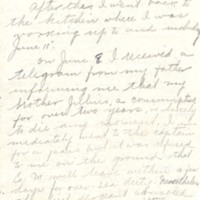 After this I went back to
the kitchen where I was
working up to and including
June 11.
On June 8 I received a
telegram from my father
informing me that my
brother Julius, a consumptive
for over two years,
to die and I
mediately went to the captain
for a pass but it was refused
to me on the ground that
Co. M will leave within a few
days for over-sea duty. Nevertheless